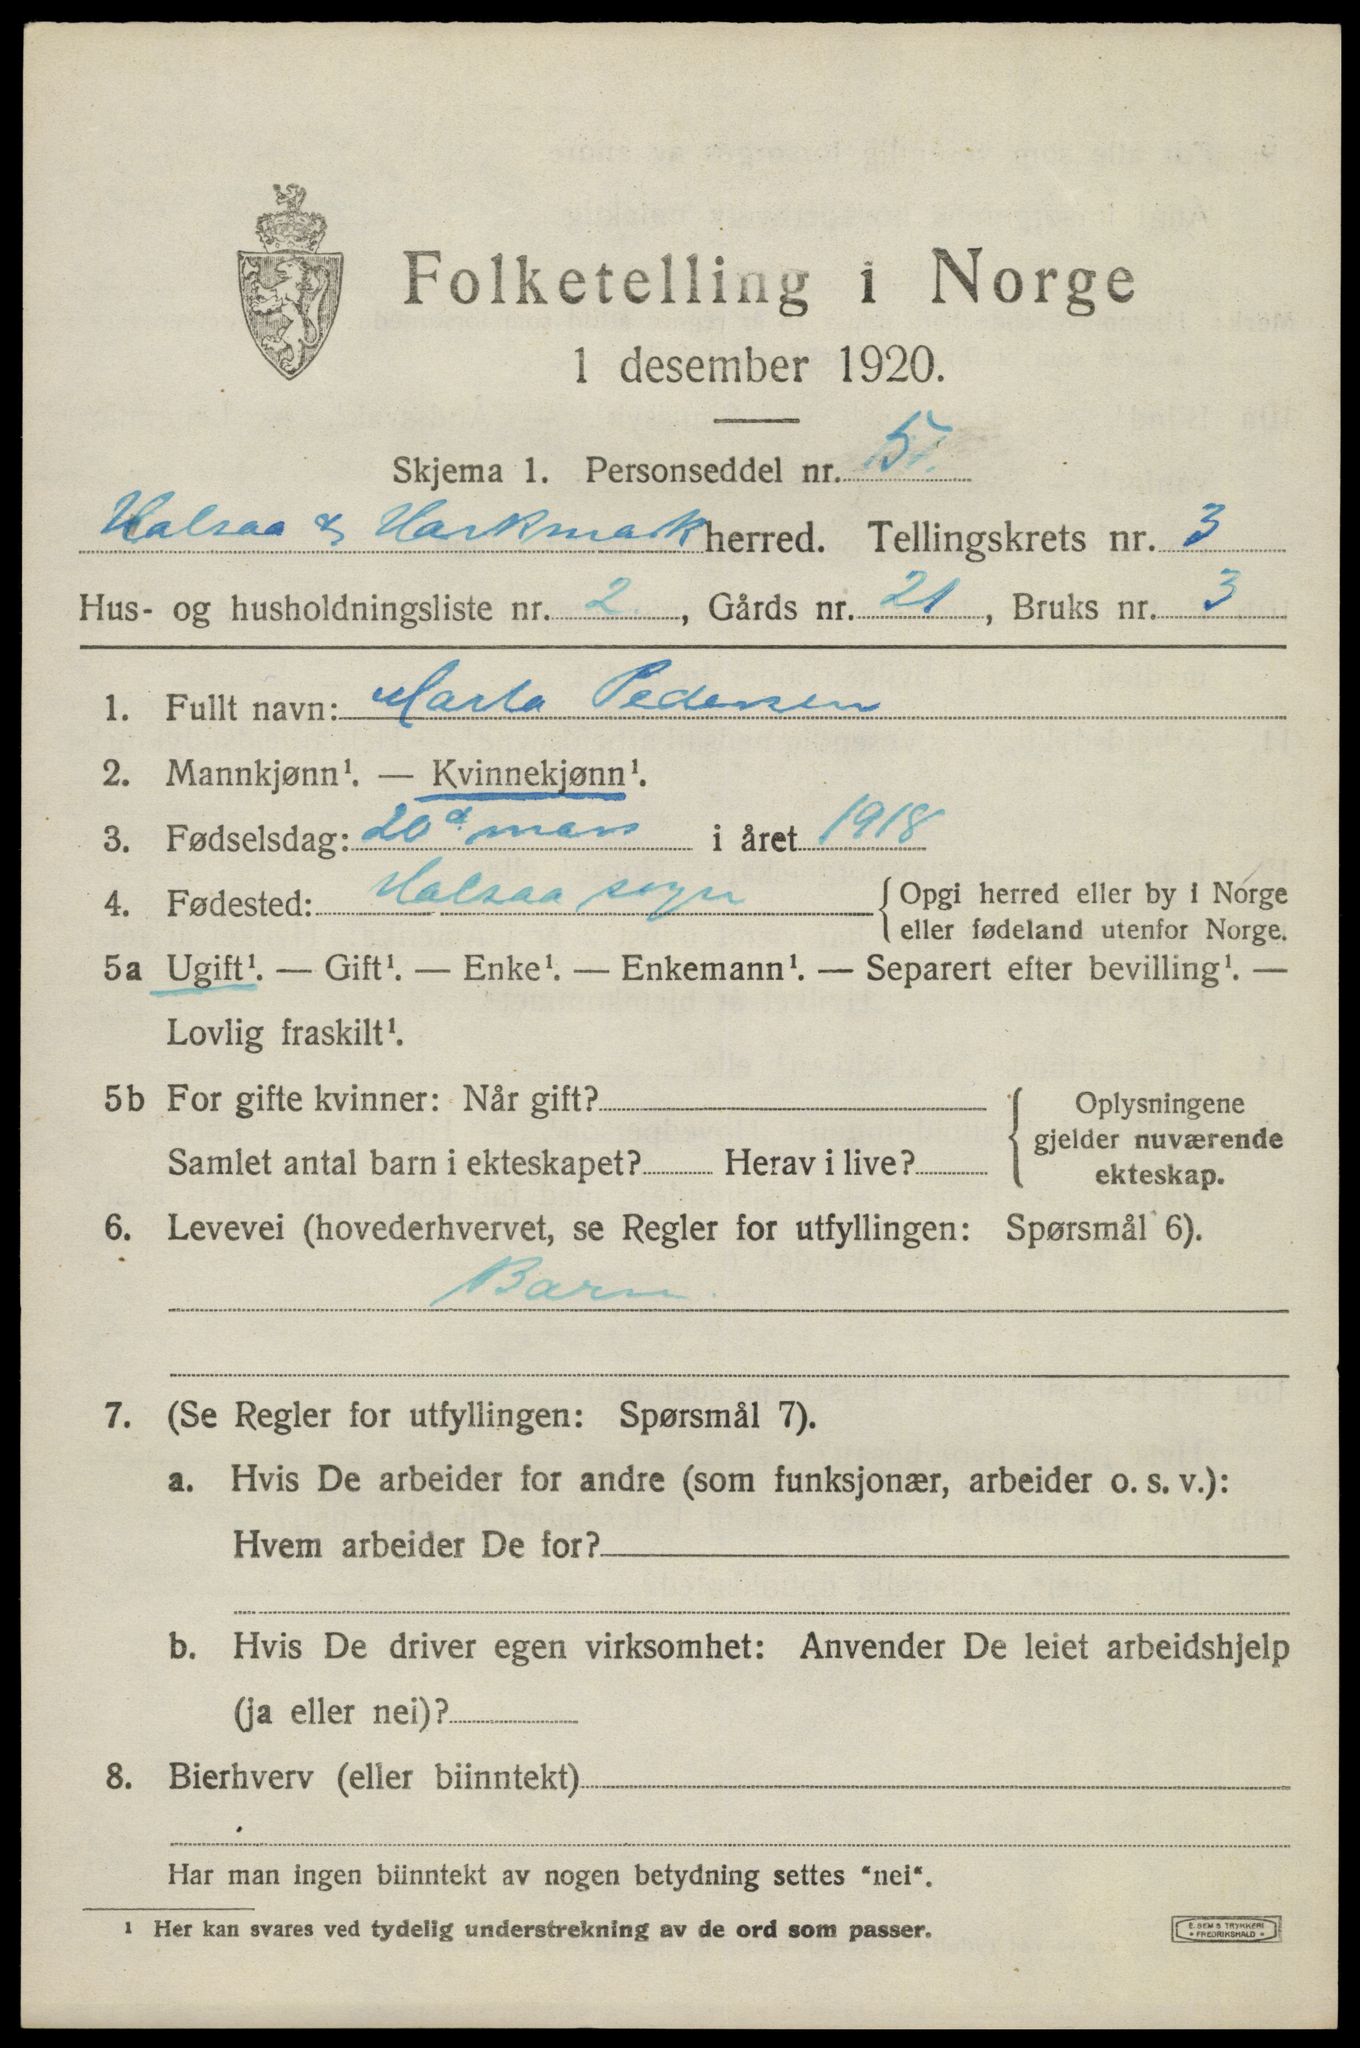 Folketelling i Norge
1 desember 1920.
Skjema 1. Personseddel nr. 5.
Halsaa & Harkmark herred. Tellingskrets nr. 3
Hus- og husholdningsliste nr. 2, Gårds nr. 21, Bruks nr. 3
1. Fullt navn: Marta Pedersen
2. Mannkjønn¹. — Kvinnekjønn¹.
3. Fødselsdag: 20de mars i året 1918
4. Fødested: Halsaa sogn {Opgi herred eller by i Norge
eller fødeland utenfor Norge.
5a Ugift¹. — Gift¹. — Enke¹. — Enkemann¹. — Separert efter bevilling¹. —
Lovlig fraskilt¹.
5b For gifte kvinner: Når gift?
Samlet antal barn i ekteskapet? Herav i live?
Oplysningene
gjelder nuværende
ekteskap.
6. Levevei (hovederhvervet, se Regler for utfyllingen: Spørsmål 6).
Barn.
7. (Se Regler for utfyllingen: Spørsmål 7).
a. Hvis De arbeider for andre (som funksjonær, arbeider o. s. v.):
Hvem arbeider De for?
b. Hvis De driver egen virksomhet: Anvender De leiet arbeidshjelp
(ja eller nei)?
8. Bierhverv (eller biinntekt)
Har man ingen biinntekt av nogen betydning settes "nei".
¹ Her kan svares ved tydelig understrekning av de ord som passer.
E. SEMS TRYKKERI
• FREDRIKSHALD •